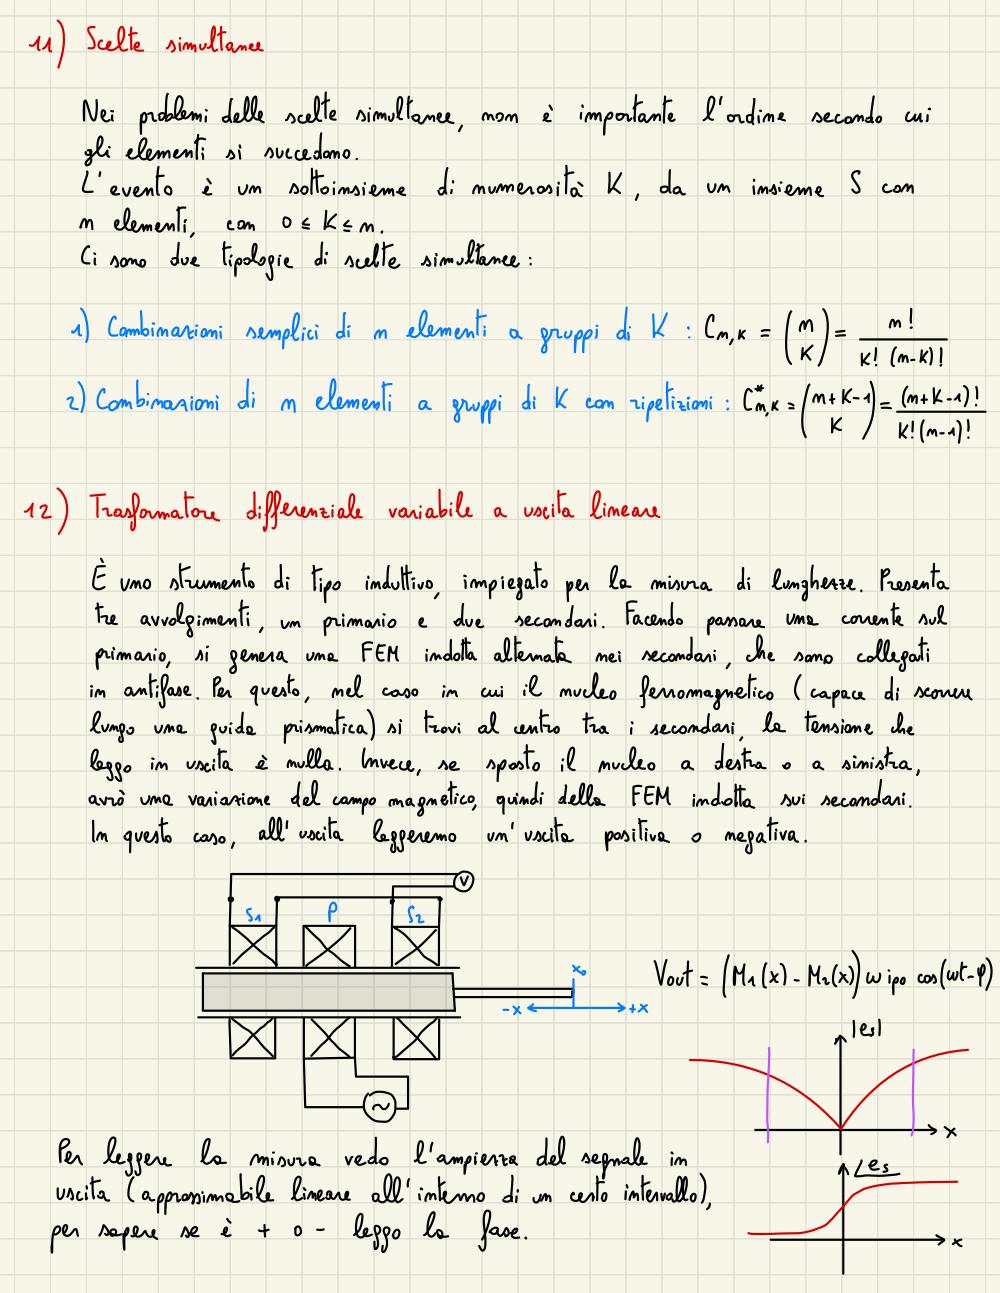 11) Scelte simultanee
Nei problemi delle scelte simultanee, non è importante l'ordine secondo cui
gli elementi si succedono.
L'evento è un sottoinsieme di numerosità K, da un insieme S con
n elementi, con 0 ≤ K ≤ n.
Ci sono due tipologie di scelte simultanee:
1) Combinazioni semplici di n elementi a gruppi di K : C_{n,K} = (n K) = n! / K! (n-K)!
2) Combinazioni di n elementi a gruppi di K con ripetizioni : C*_{n,K} = (n+K-1 K) = (n+K-1)! / K!(n-1)!
12) Trasformatore differenziale variabile a uscita lineare
È uno strumento di tipo induttivo, impiegato per la misura di lunghezze. Presenta
tre avvolgimenti, un primario e due secondari. Facendo passare una corrente sul
primario, si genera una FEM indotta alternata nei secondari, che sono collegati
in antifase. Per questo, nel caso in cui il nucleo ferromagnetico (capace di scorrere
lungo una guida prismatica) si trovi al centro tra i secondari, la tensione che
leggo in uscita è nulla. Invece, se sposto il nucleo a destra o a sinistra,
avrò una variazione del campo magnetico, quindi della FEM indotta sui secondari.
In questo caso, all'uscita leggeremo un'uscita positiva o negativa.
V
S1 P S2
x₀
-x +x
~
Vout = (M₁(x) - M₂(x)) ω ip₀ cos(ωt-φ)
|es|
x
∠es
x
Per leggere la misura vedo l'ampiezza del segnale in
uscita (approssimabile lineare all'interno di un certo intervallo),
per sapere se è + o - leggo la fase.